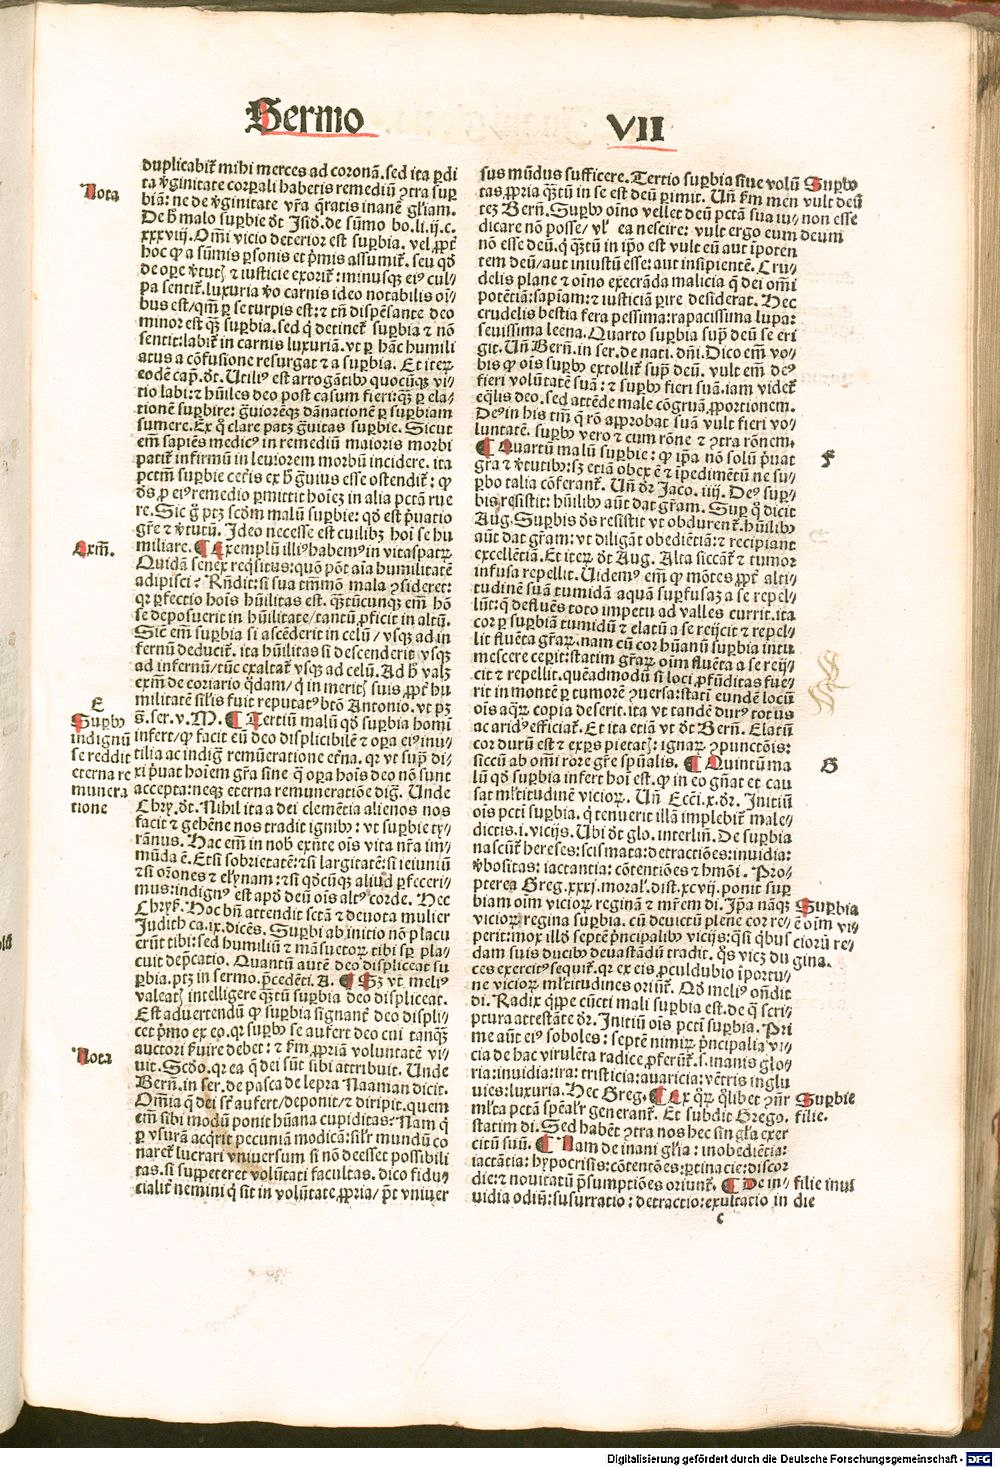 Sermo
VII
duplicabit᷑ mihi merces ad coronā. sed ita ꝑdi
Nota
ta v̓ginitate corꝑali habetis remediū ꝯtra suꝑ
biā: ne de v̓ginitate vr̄a q̄ratis inanē gl̓iam.
De h̓ malo suꝑbie dt̄ Isid̓. de sūmo bo. li. ij. c.
xxxviij. Om̄i vicio deterior est suꝑbia. vel ꝓpt̄
hoc ꝙ a sūmis ꝑsonis et p̓mis assumit᷑. seu qd̓
de oꝑe v̓tutꝭ ⁊ iusticie exorit᷑: minusqꝫ eiꝰ cul⸗
pa sentit᷑. luxuria v̓o carnis ideo notabilis oī⸗
bus est / qm̄ ꝑ se turpis est: ⁊ tn̄ dispēsante deo
minor est qꝫ suꝑbia. sed q̇ detinet᷑ suꝑbia ⁊ nō
sentit: labit᷑ in carnis luxuriā. vt ꝑ hāc humili
atus a cōfusione resurgat ⁊ a suꝑbia. Et iteꝝ
eodē cap̓. dt̄. Utiliꝰ est arrogātibꝰ quocūqꝫ vi⸗
tio labi: ⁊ hūiles deo post casum fieri: qꝫ ꝑ ela⸗
tionē suꝑbire: g̓uiorēqꝫ dānationē ꝑ suꝑbiam
sumere. Ex q̇ clare patꝫ g̓uitas suꝑbie. Sicut
em̄ sapiēs medicꝰ in remediū maioris morbi
patit᷑ infirmū in leuiorem morbū incidere. ita
pctm̄ suꝑbie cet̓is ex h̓ g̓uius esse ostendit᷑: ꝙ
d̓s ꝓ eiꝰ remedio ꝑmittit hoīeꝫ in alia pctā rue
re. Sic g̓ ptꝫ scd̓m malū suꝑbie: qd̓ est p̓uatio
gr̄e ⁊ v̓tutū. Ideo necesse est cuilibꝫ hoi se hu
Exm̄.
miliare. ¶ Exemplū illiꝰ habemꝰ in vitaspatꝝ.
Quidā senex reqͥsitus: quō pōt aīa humilitatē
adipisci? Rn̄dit: si sua tm̄mō mala ꝯsideret:
qꝛ ꝑfectio hoīs hūilitas est. qꝫtūcunqꝫ em̄ hō
se deposuerit in hūilitate / tantū ꝓficit in altū.
Sic̄ em̄ suꝑbia si ascēderit in celū / vsqꝫ ad in
fernū deducit᷑. ita hūilitas si descenderit vsqꝫ
ad infernū / tūc exaltat᷑ vsqꝫ ad celū. Ad h̓ valꝫ
exm̄ de coriario q̇dam / q̇ in meritꝭ suis ꝓpt̄ hu
militatē sil̓is fuit reputatꝰ btō Antonio. vt pꝫ
s̄. ser. v. M. ¶ Tertiū malū qd̓ suꝑbia homi
E
Suꝑbꝰ
indignū
se reddit
eterna re
munera
tione
infert / ꝙ facit eū deo displicibilē ⁊ oꝑa eiꝰ inu⸗
tilia ac indig̓ remūeratione et̓na. qꝛ vt sup̄ di⸗
xi p̓uat hoīem gr̄a sine q̇ oꝑa hoīs deo nō sunt
accepta: neqꝫ eterna remuneratiōe dig̓. Unde
Chrẏ. dt̄. Nihil ita a dei clemētia alienos nos
facit ⁊ gehēne nos tradit ignibꝰ: vt suꝑbie ty⸗
rānus. Hac em̄ in nob̓ exn̄te oīs vita nr̄a im⸗
mūda ē. Etsi sobrietatē: ⁊si largitatē: si ieiuniū
⁊si orōnes ⁊ elẏnam: ⁊si qd̓cūqꝫ aliud ꝑfeceri⸗
mus: indignꝰ est apd̓ deū oīs altꝰ corde. Hec
Chryẜ. Hoc bn̄ attendit sctā ⁊ deuota mulier
Judith ca. ix. dicēs. Suꝑbi ab initio nō placu
erūt tibi: sed humiliū ⁊ māsuetoꝝ tibi sꝑ pla⸗
cuit dep̓catio. Quantū autē deo displiceat su
ꝑbia. ptꝫ in sermo. p̄cedēti. A. ¶ Sꝫ vt meliꝰ
valeatꝭ intelligere qꝫtū suꝑbia deo displiceat.
Est aduertendū ꝙ suꝑbia signant᷑ deo displi⸗
cet p̓mo ex eo. qꝛ suꝑbꝰ se aufert deo cui tanqꝫ
Nota
auctori ẜuire debet: ⁊ ẜm ꝓpriā voluntatē vi⸗
uit. Scd̓o. qꝛ ea q̄ dei sūt sibi attribuit. Unde
Bern̄. in ser. de pasca de lepra Naaman dicit.
Om̄ia q̄ dei sr̄t aufert / deponit / ⁊ diripit. quem
em̄ sibi modū ponit hūana cupiditas? Nam q̇
ꝑ vsurā acq̇rit pecuniā modicā: sil̓r mundū co
naret᷑ lucrari vniuersum si nō deesset possibili
tas. si suppeteret volūtati facultas. dico fidu⸗
cialit᷑ nemini q̇ sit in volūtate ꝓpria / p̄t vniuer
sus mūdus sufficere. Tertio suꝑbia siue volū
Suꝑbꝰ
vult deū
non esse
deum
tas ꝓpria qꝫtū in se est deū ꝑimit. Un̄ ẜm men
teꝫ Bern̄. Suꝑbꝰ oīno vellet deū pctā sua iu⸗
dicare nō posse / vl̓ ea nescire: vult ergo eum
nō esse deū. q̇ qꝫtū in ip̄o est vult eū aut īpoten
tem deū / aut iniustū esse: aut insipientē. Cru⸗
delis plane ⁊ oīno execrāda malicia q̄ dei om̄i
potētiā: sapiam: ⁊ iusticiā ꝑire desiderat. Hec
crudelis bestia fera pessima: rapacissima lupa:
seuissima leena. Quarto suꝑbia sup̄ deū se eri
git. Un̄ Bern̄. in ser. de nati. dn̄i. Dico em̄ vo⸗
bis ꝙ oīs suꝑbꝰ extollit᷑ sup̄ deū. vult em̄ deꝰ
fieri volūtatē suā: ⁊ suꝑbꝰ fieri suā. iam videt᷑
eq̄lis deo. sed attēde male cōgruā ꝓportionem.
Deꝰ in his tm̄ q̄ rō approbat suā vult fieri vo⸗
luntatē. suꝑbꝰ vero ⁊ cum rōne ⁊ ꝯtra rōnem.
¶ Quartū malū suꝑbie: ꝙ ip̄a nō solū p̓uat
F
gr̄a ⁊ v̓tutibꝰ: sꝫ etiā obex ē ⁊ īpedimētū ne su⸗
ꝑbo talia cōferant᷑. Un̄ dr̄ Jaco. iiij. Deꝰ suꝑ⸗
bis resistit: hūilibꝰ aūt dat gr̄am. Suꝑ q̇ dicit
Aug. Suꝑbis d̓s resistit vt obdurent᷑. hūilibꝰ
aūt dat gr̄am: vt diligāt obediētiā: ⁊ recipiant
excellētiā. Et iteꝝ dt̄ Aug. Alta siccāt᷑ ⁊ tumor
infusa repellit. Uidemꝰ em̄ ꝙ mōtes ꝓpt̄ alti⸗
tudinē suā tumidā aquā suꝑfusaꝫ a se repel⸗
lūt: q̄ defluēs toto impetu ad valles currit. ita
cor ꝑ suꝑbiā tumidū ⁊ elatū a se reijcit ⁊ repel⸗
lit fluēta gr̄aꝝ. nam cū cor hūanū suꝑbia intu
mescere ceꝑit: statim gr̄aꝝ oīm fluēta a se reij⸗
cit ⁊ repellit. quēadmodū si loci ꝓfūditas fue⸗
rit in montē ꝑ tumorē ꝯuersa: statī eundē locū
oīs aq̄ꝝ copia deserit. ita vt tandē durꝰ totus
ac aridꝰ efficiat᷑. Et ita etiā vt dt̄ Bern̄. Elatū
cor durū est ⁊ exꝑs pietatꝭ: ignaꝝ ꝯpunctōis:
siccū ab om̄i rore gr̄e spūalis. ¶ Quintū ma
G
lū qd̓ suꝑbia infert hoi est. ꝙ in eo gn̄at et cau
sat ml̓titudinē vicioꝝ. Un̄ Ecci. x. dr̄. Initiū
oīs pcti suꝑbia. q̇ tenuerit illā implebit᷑ male⸗
dictis. i. vicijs. Ubi dt̄ glo. interlin̄. De suꝑbia
nascūt᷑ hereses: scismata: detractiōes: inuidia:
v̓bositas: iactantia: cōtentiōes ⁊ hmōi. Pro⸗
pterea Greg. xxxj. moral̓. dist. xcvij. ponit suꝑ
Suꝑbia
ē oīm vi⸗
cioꝝ re⸗
gina.
biam oīm vicioꝝ reginā ⁊ mr̄em di. Ip̄a nāqꝫ
vicioꝝ regina suꝑbia. cū deuictū plene cor re⸗
ꝑerit: mox illd̓ septē p̓ncipalibꝰ vicijs: q̄si q̇bus
dam suis ducibꝰ deuastādū tradit. q̇s vicꝫ du
ces exercitꝰ sequit᷑. qꝛ ex eis ꝓculdubio īportu⸗
ne vicioꝝ ml̓titudines oriūt᷑. Qd̓ meliꝰ on̄dit
di. Radix q̇ppe cūcti mali suꝑbia est. de q̇ scri⸗
ptura attestāte dr̄. Initiū oīs pcti suꝑbia. Pri
me aūt eiꝰ soboles: septē nimiꝝ p̓ncipalia vi⸗
cia de hac virulēta radice ꝓferūt᷑. s. inanis glo⸗
ria: inuidia: ira: tristicia: auaricia: vētris inglu
uies: luxuria. Hec Greg. ¶ Ex qͥꝝ q̇libet ꝯn̄r
Suꝑbie
filie.
ml̓ta pctā spēal̓r generant᷑. Et subdit Grego.
statim di. Sed habēt ꝯtra nos hec singl̓a exer
citū suū. ¶ Nam de inani gl̓ia: inobediētia:
iactātia: hypocrisis: cōtentōes: ꝑtinacie: discor
die: ⁊ nouitatū p̓sumptiōes oriunt᷑. ¶ De in⸗
filie inui
die
uidia odiū: susurratio: detractio: exultatio in
c
Digitalisierung gefördert durch die Deutsche Forschungsgemeinschaft - DFG